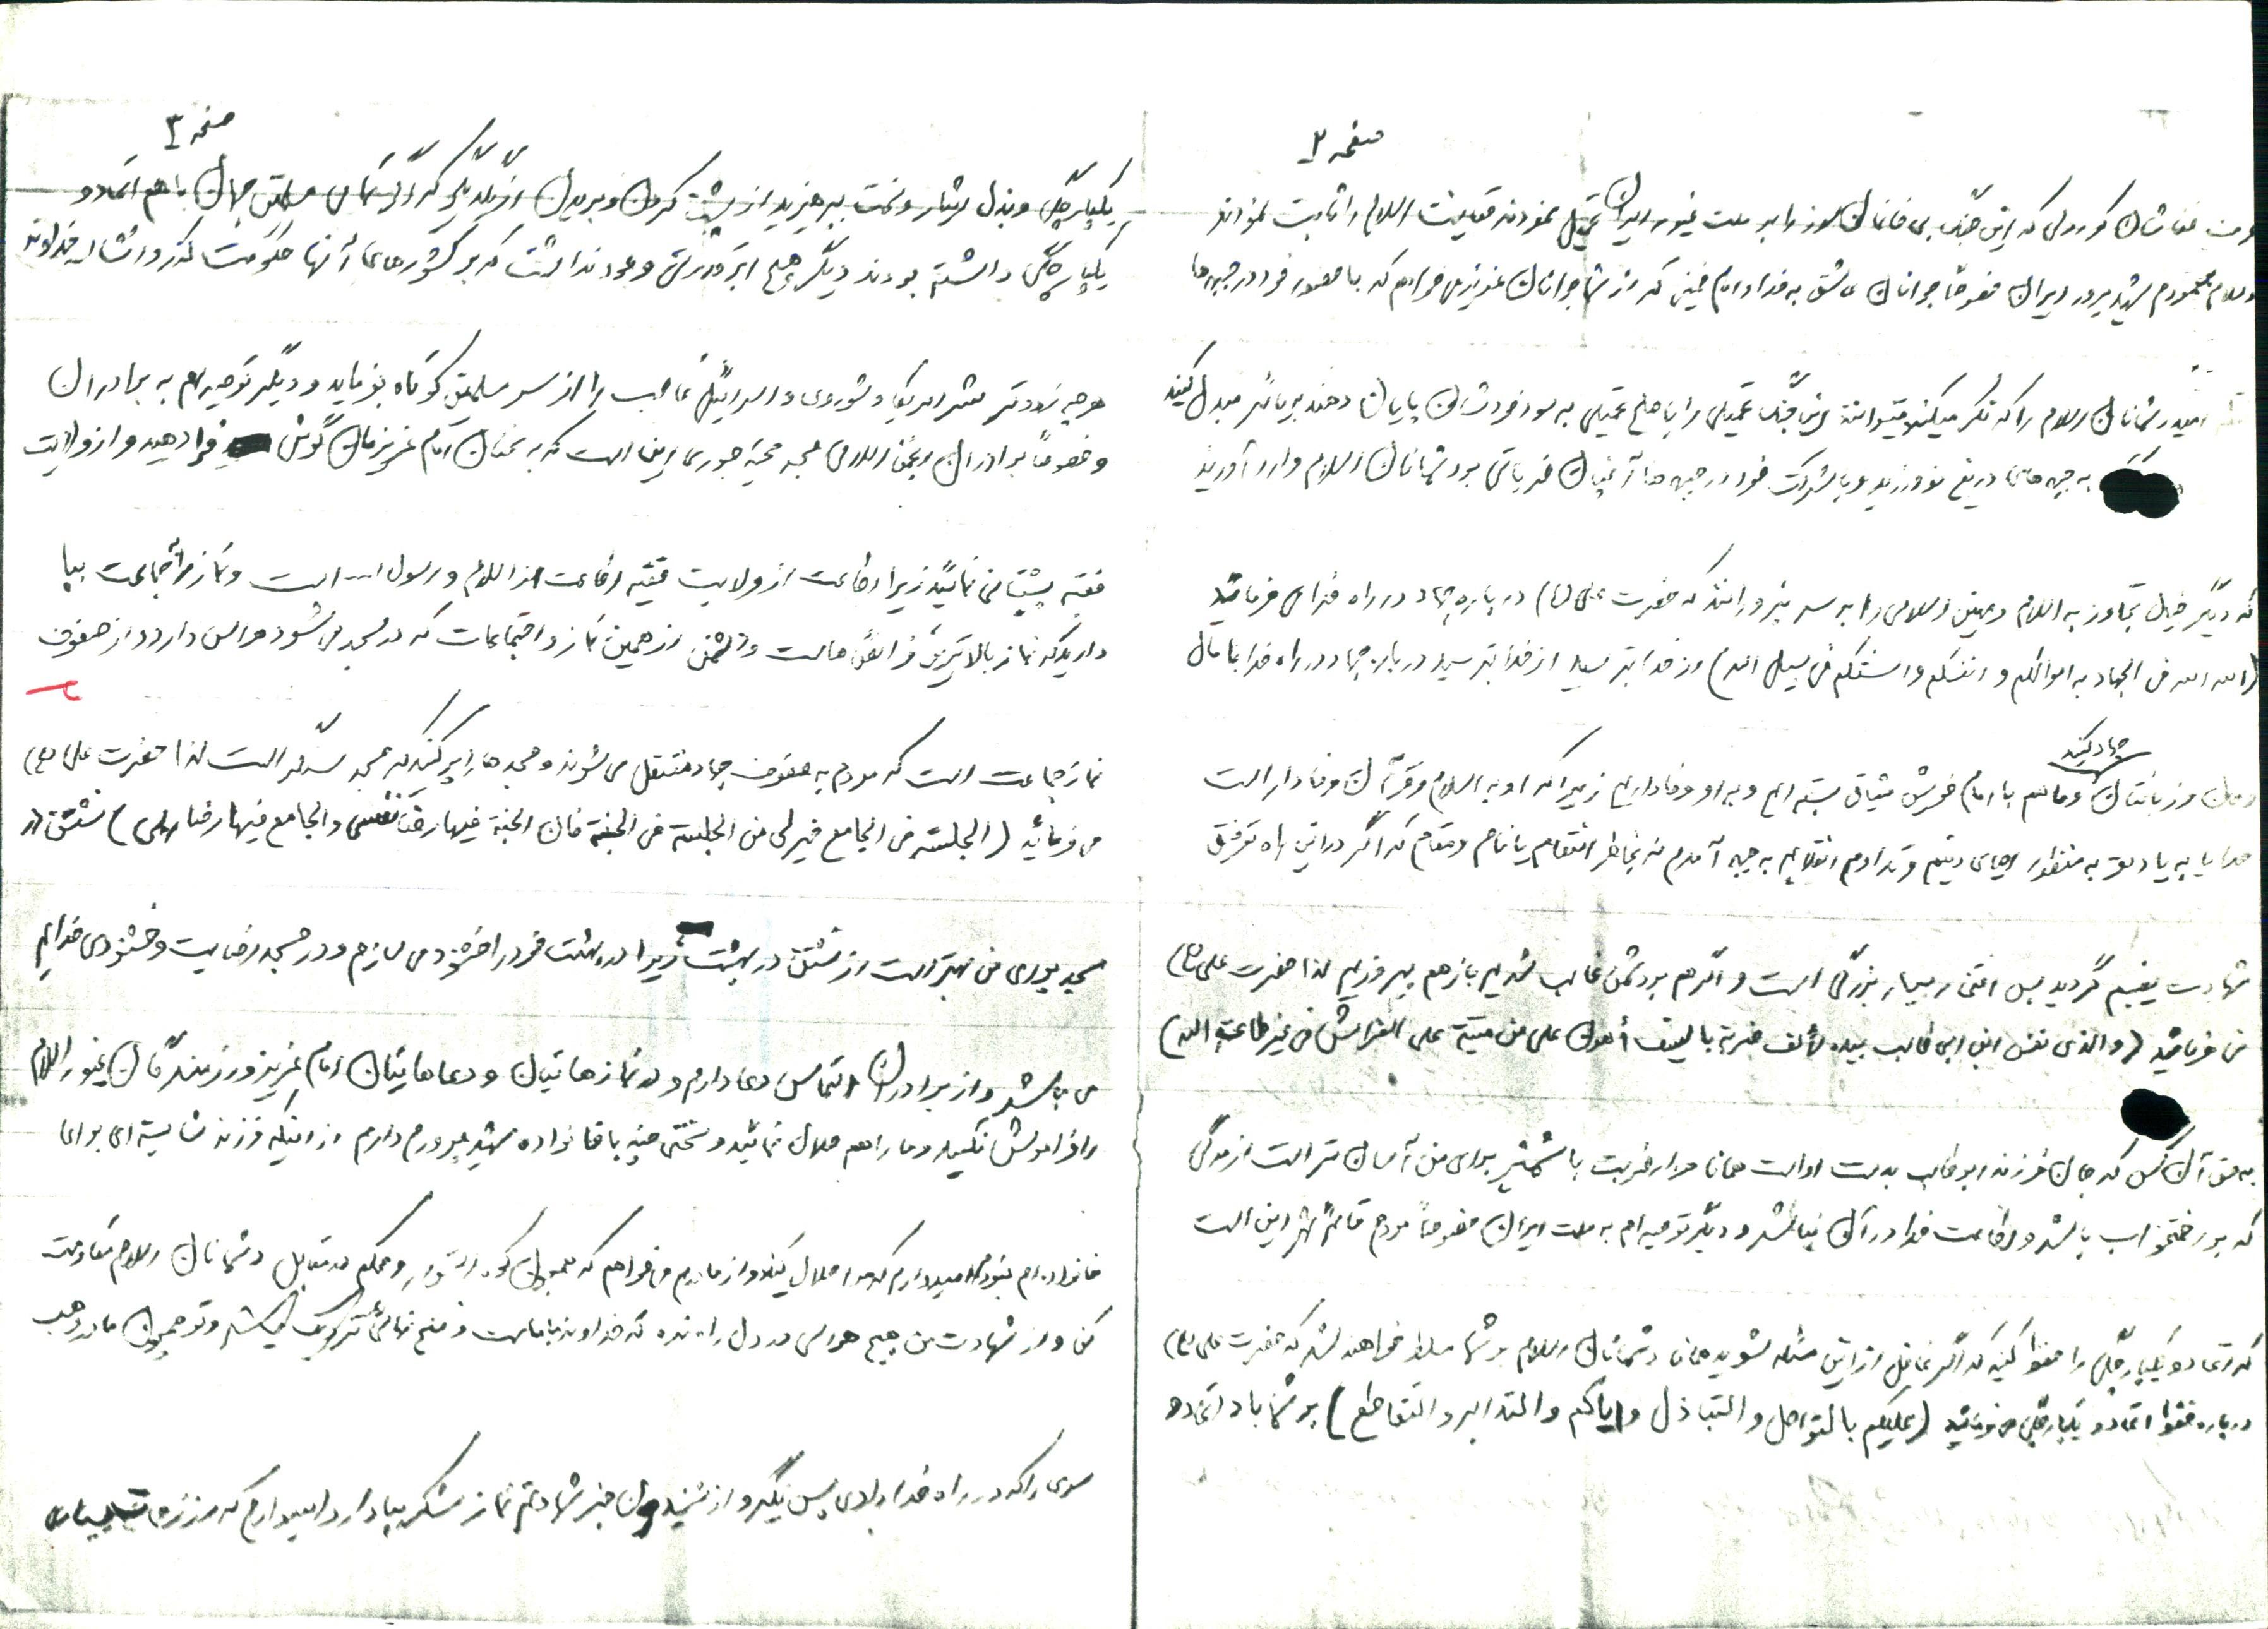 صفحه ۲
کوردلی که این جنگ بی خانمان سوز را بر ملت غیور ایران تحمیل نمودند حقانیت اسلام را ثابت نمودند
مردم شهید پرور ایران خصوصاً جوانان عاشق به خدا و امام خمینی که از شما جوانان عزیز می خواهم که با حضور خود در جبهه ها
امید دشمنان اسلام را که فکر میکنند میتوانند این جنگ تحمیلی را با صلح تحمیلی به سود خودشان پایان دهند به یأس مبدل کنید
به جبهه های دریغ نورزید و با شرکت خود در جبهه ها آنچنان ضرباتی بر دشمنان اسلام وارد آورید
که دیگر خیال تجاوز به اسلام و میهن اسلامی را به سر نپرورانند که حضرت علی (ع) درباره جهاد در راه خدا می فرمائید
(الله الله فی الجهاد به اموالکم و انفسکم و السنتکم فی سبیل الله) از خدا بترسید از خدا بترسید درباره جهاد در راه خدا با مال
جهاد کنید
و زبانتان و ما هم با امام خویش میثاق بسته ایم و به او وفاداریم زیرا که او به اسلام و قرآن وفادار است
خدایا به یاد تو به منظور احیای دینم و تداوم انقلابم به جبهه آمدم نه بخاطر انتقام یا نام و مقام که اگر در این راه توفیق
شهادت نصیبم گردید بس افتخار بسیار بزرگی است و اگر هم بر دشمن غالب شدیم باز هم پیروزیم لذا حضرت علی (ع)
می فرمائید (والذی نفس ابن ابی طالب بیده لألف ضربة بالسیف أهون علی من میتة علی الفراش فی غیر طاعة الله)
به حق آن کس که جان فرزند ابوطالب بدست اوست همانا هزار ضربت با شمشیر برای من آسان تر است از مرگی
که بر رختخواب باشد و اطاعت خدا در آن نباشد و دیگر توصیه ام به ملت ایران خصوصاً مردم قائم شهر این است
که اتحاد و یکپارچگی را حفظ کنید که اگر غافل از این مسئله شوید همانا دشمنان اسلام بر شما مسلط خواهند شد که حضرت علی (ع)
درباره حفظ اتحاد و یکپارچگی می فرمائید (علیکم بالتواصل والتباذل و ایاکم والتدابر والتقاطع) بر شما باد اتحاد و
صفحه ۳
یکپارچگی و بذل ایثار و نعمت بپرهیزید از پشت کردن و بریدن از یکدیگر که اگر تمامی مسلمین جهان با هم اتحاد و
یکپارچگی داشته بودند دیگر هیچ ابرقدرتی وجود نداشت که بر کشورهای آنها حکومت کند و انشاءاله خداوند
هر چه زودتر شر امریکا و شوروی و اسرائیل غاصب را از سر مسلمین کوتاه بفرماید و دیگر توصیه ام به برادران
و خصوصاً برادران انجمن اسلامی مسجد این است که به سخنان امام عزیزمان گوش فرا دهید و از ولایت
فقیه پشتیبانی نمائید زیرا اطاعت از ولایت فقیه اطاعت از اسلام و رسول الله است و نماز را به جماعت بپا
دارید که نماز بالاترین فرائض هاست و دشمن از همین نماز و اجتماعات که در مسجد می شود هراس دارد و از صفوف
نماز جماعت است که مردم به صفوف جهاد منتقل می شوند و مسجدها را پر کنید که مسجد سنگر است لذا حضرت علی (ع)
می فرمائید (الجلسته فی الجامع خیر لی من الجلسة فی الجنة فان الجنة فیها رضا نفسی والجامع فیها رضا ربی) نشستن در
مسجد برای من بهتر است از نشستن در بهشت زیرا در بهشت خود را خشنود می سازم و در مسجد رضایت و خشنودی خدایم
می باشد و از برادران التماس دعا دارم و در نمازهایتان و دعاهایتان امام عزیز و رزمندگان غیور اسلام
را فراموش نکنید و ما را هم حلال نمائید و سخنی چند با خانواده شهید پرورم دارم از اینکه فرزند شایسته ای برای
خانواده ام نبودم امیدوارم که مرا حلال کنند و از مادرم می خواهم که همچون کوه استوار و محکم در مقابل دشمنان اسلام مقاومت
کن و از شهادت من هیچ هراسی در دل راه نده که خداوند با ماست و فتح نهائی نزدیک میباشد و تو همچون مادر وهب
سری را که در راه خدا دادی پس نگیر و از شنیدن خبر شهادتم نماز شکر بپا دار و امیدوارم که